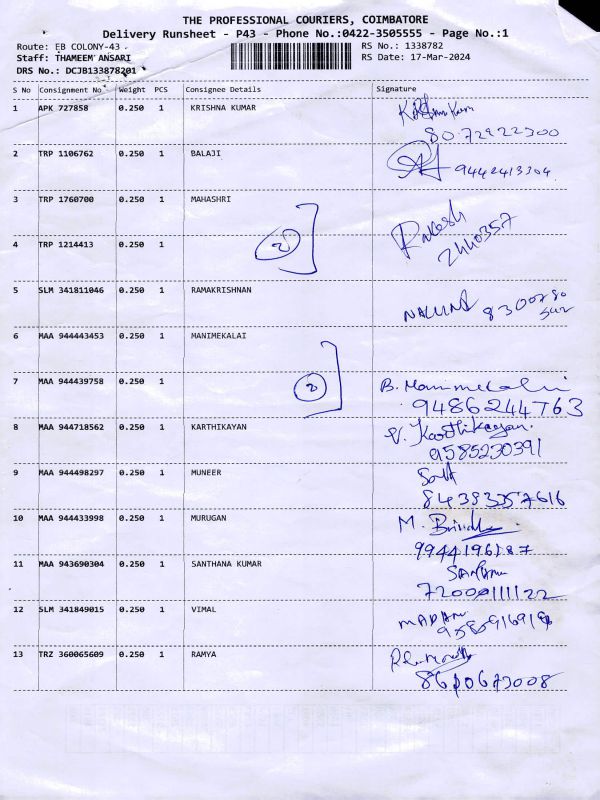 THE PROFESSIONAL COURIERS, COIMBATORE
Delivery Runsheet - P43 - Phone No.:0422-3505555 - Page No.:1
Route: EB COLONY-43 RS No.: 1338782
Staff: THAMEEM ANSARI RS Date: 17-Mar-2024
DRS No.: DCJB133878201
S No Consignment No Weight PCS Consignee Details Signature
1 APK 727858 0.250 1 KRISHNA KUMAR
8072922300
2 TRP 1106762 0.250 1 BALAJI
9442413304
3 TRP 1760700 0.250 1 MAHASHRI
2 Rakesh
4 TRP 1214413 0.250 1 2440357
5 SLM 341811046 0.250 1 RAMAKRISHNAN
6 MAA 944443453 0.250 1 MANIMEKALAI
7 MAA 944439758 0.250 1 2 B. Manimekalai
9486244763
8 MAA 944718562 0.250 1 KARTHIKAYAN V. Karthikeyan
9585230391
9 MAA 944498297 0.250 1 MUNEER
10 MAA 944433998 0.250 1 MURUGAN M.
9944196187
11 MAA 943690304 0.250 1 SANTHANA KUMAR
12 SLM 341849015 0.250 1 VIMAL
MADAN
13 TRZ 360065609 0.250 1 RAMYA
8610673008